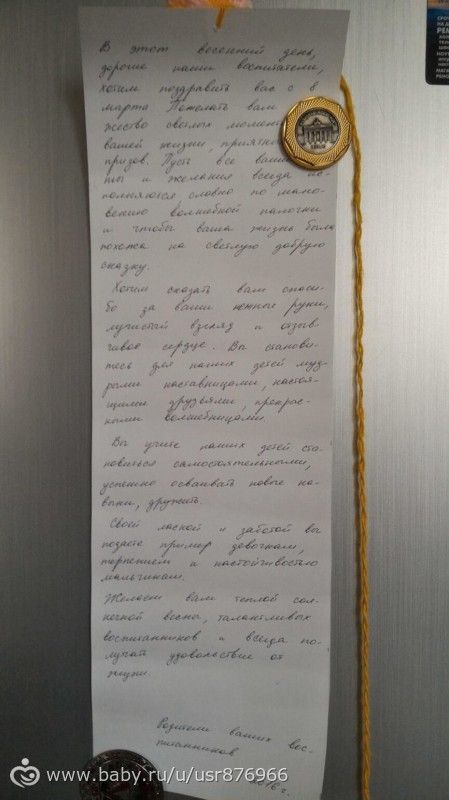 В этот весенний день,
дорогие наши воспитатели,
хотим поздравить вас с 8
марта. Пожелать вам
жество светлых момент
вашей жизни, приятн
призов. Пусть все ваши
ты и желания всегда ис-
полняются словно по мано-
вению волшебной палочки
и чтобы ваша жизнь была
похожа на светлую добрую
сказку.
Хотим сказать вам спаси-
бо за ваши нежные руки,
лучистый взгляд и отзыв-
чивое сердце. Вы станови-
тесь для наших детей муд-
рыми наставницами, настоя-
щими друзьями, прекрас-
ными волшебницами.
Вы учите наших детей ста-
новиться самостоятельными,
успешно осваивать новые на-
выки, дружить.
Своей лаской и заботой вы
подаете пример девочкам,
терпением и настойчивостью
мальчикам.
Желаем вам теплой сол-
нечной весны, талантливых
воспитанников и всегда по-
лучать удовольствие от
жизни.
Родители ваших вос-
питанников
www.baby.ru/u/usr876966